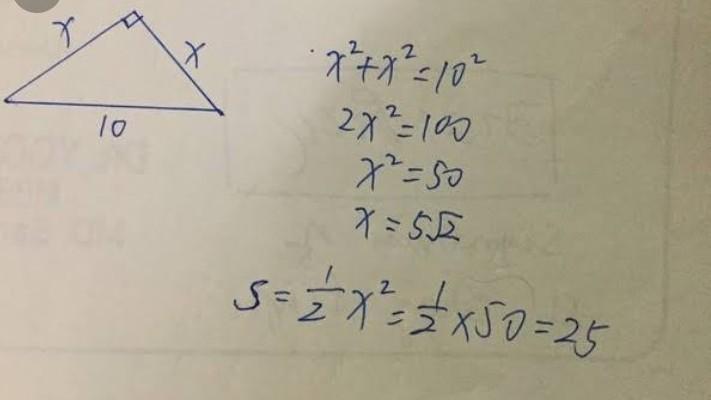 x
x
10
x²+x²=10²
2x²=100
x²=50
x=5√2
S=½x²=½×50=25